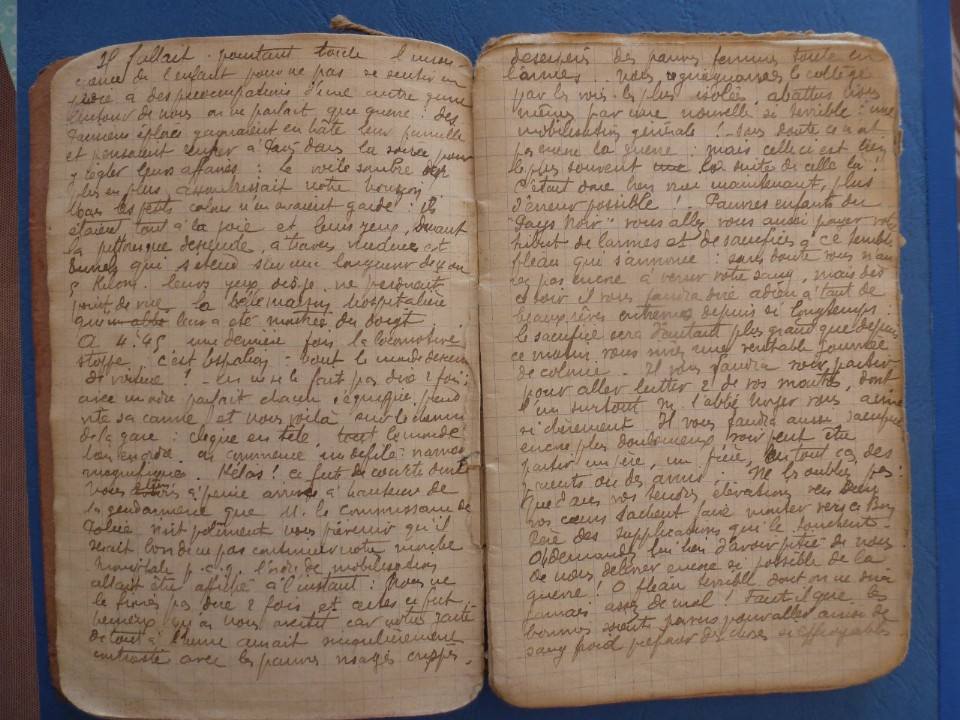 Il fallait pourtant toute l'insou-
ciance de l'enfant pour ne pas se sentir en
proie à des préoccupations d'une autre
autour de nous on ne parlait que guerre : des
Parisiens éplorés gagnaient en hâte leur famille
et pensaient rentrer à Paris dans la soirée pour
y régler leurs affaires : le voile sombre de
plus en plus assombrissait notre horizon
Mais les petits colons n'en avaient garde : ils
étaient tout à la joie et leurs yeux, devant
la pittoresque descende, à travers
qui s'étend sur une longueur de 4 ou
5 Kilom. leurs yeux dis-je ne perdaient
point de vue la belle maison hospitalière
qui leur a été montrée du doigt
A 4.45 une dernière fois la locomotive
stoppe : c'est Espalion - tout le monde descend
de voiture ! - On ne se le fait pas dire 2 fois ;
avec un air parfait chacun s'équipe, prend
vite sa canne et nous voilà sur le chemin
de la gare : clique en tête, tout le monde
bon ordre on commence un défilé
magnifique. Hélas ! ce fut de courte durée
Nous étions à peine arrivés à hauteur de
la gendarmerie que M. le commissaire de
Police vint poliment nous prévenir qu'il
serait bon de ne pas continuer notre marche
triomphale p.c.q. l'ordre de mobilisation
allait être affiché à l'instant : Nous ne
le fîmes pas dire 2 fois, et certes ce fut
heureux qu'on nous avertit car notre gaîté
de tout à l'heure aurait singulièrement
contrasté avec les pauvres visages crispés,
désespérés des pauvres femmes toutes en
larmes. Nous regagnâmes le collège
par les voies les plus isolées, abattus nous
mêmes par une nouvelle si terrible : une
mobilisation générale ! Sans doute ce n'est
pas encore la guerre : mais celle ci est bien
le plus souvent la suite de celle là !
C'était donc bien vrai maintenant, plus
d'erreur possible ! Pauvres enfants du
"Pays Noir" vous allez vous aussi payer votre
tribut de larmes et de sacrifices à ce terrible
fléau qui s'annonce : sans doute vous n'au
rez pas encore à verser votre sang, mais dès
ce soir il vous faudra dire adieu à tant de
beaux rêves entrevus depuis si longtemps :
le sacrifice sera d'autant plus grand que depuis
ce matin vous vivez une véritable journée
de colonie. Il vous faudra voir partir
pour aller lutter 2 de vos maîtres, dont
l'un surtout M. l'abbé Noyer vous aime
si chèrement. Il vous faudra aussi, sacrifice
encore plus douloureux voir peut être
partir un père, un frère, en tout cas des
parents ou des amis. Ne les oubliez pas :
que dans vos tendres élévations vers Dieu
vos cœurs sachent faire monter vers ce Bon
Père des supplications qui le touchent.
O demandez lui bien d'avoir pitié de nous
de nous délivrer encore si possible de la
guerre ! O fléau terrible dont on ne dira
jamais assez de mal ! Faut il que les
hommes soient pour aller ainsi de
sang froid préparer des choses si effroyables